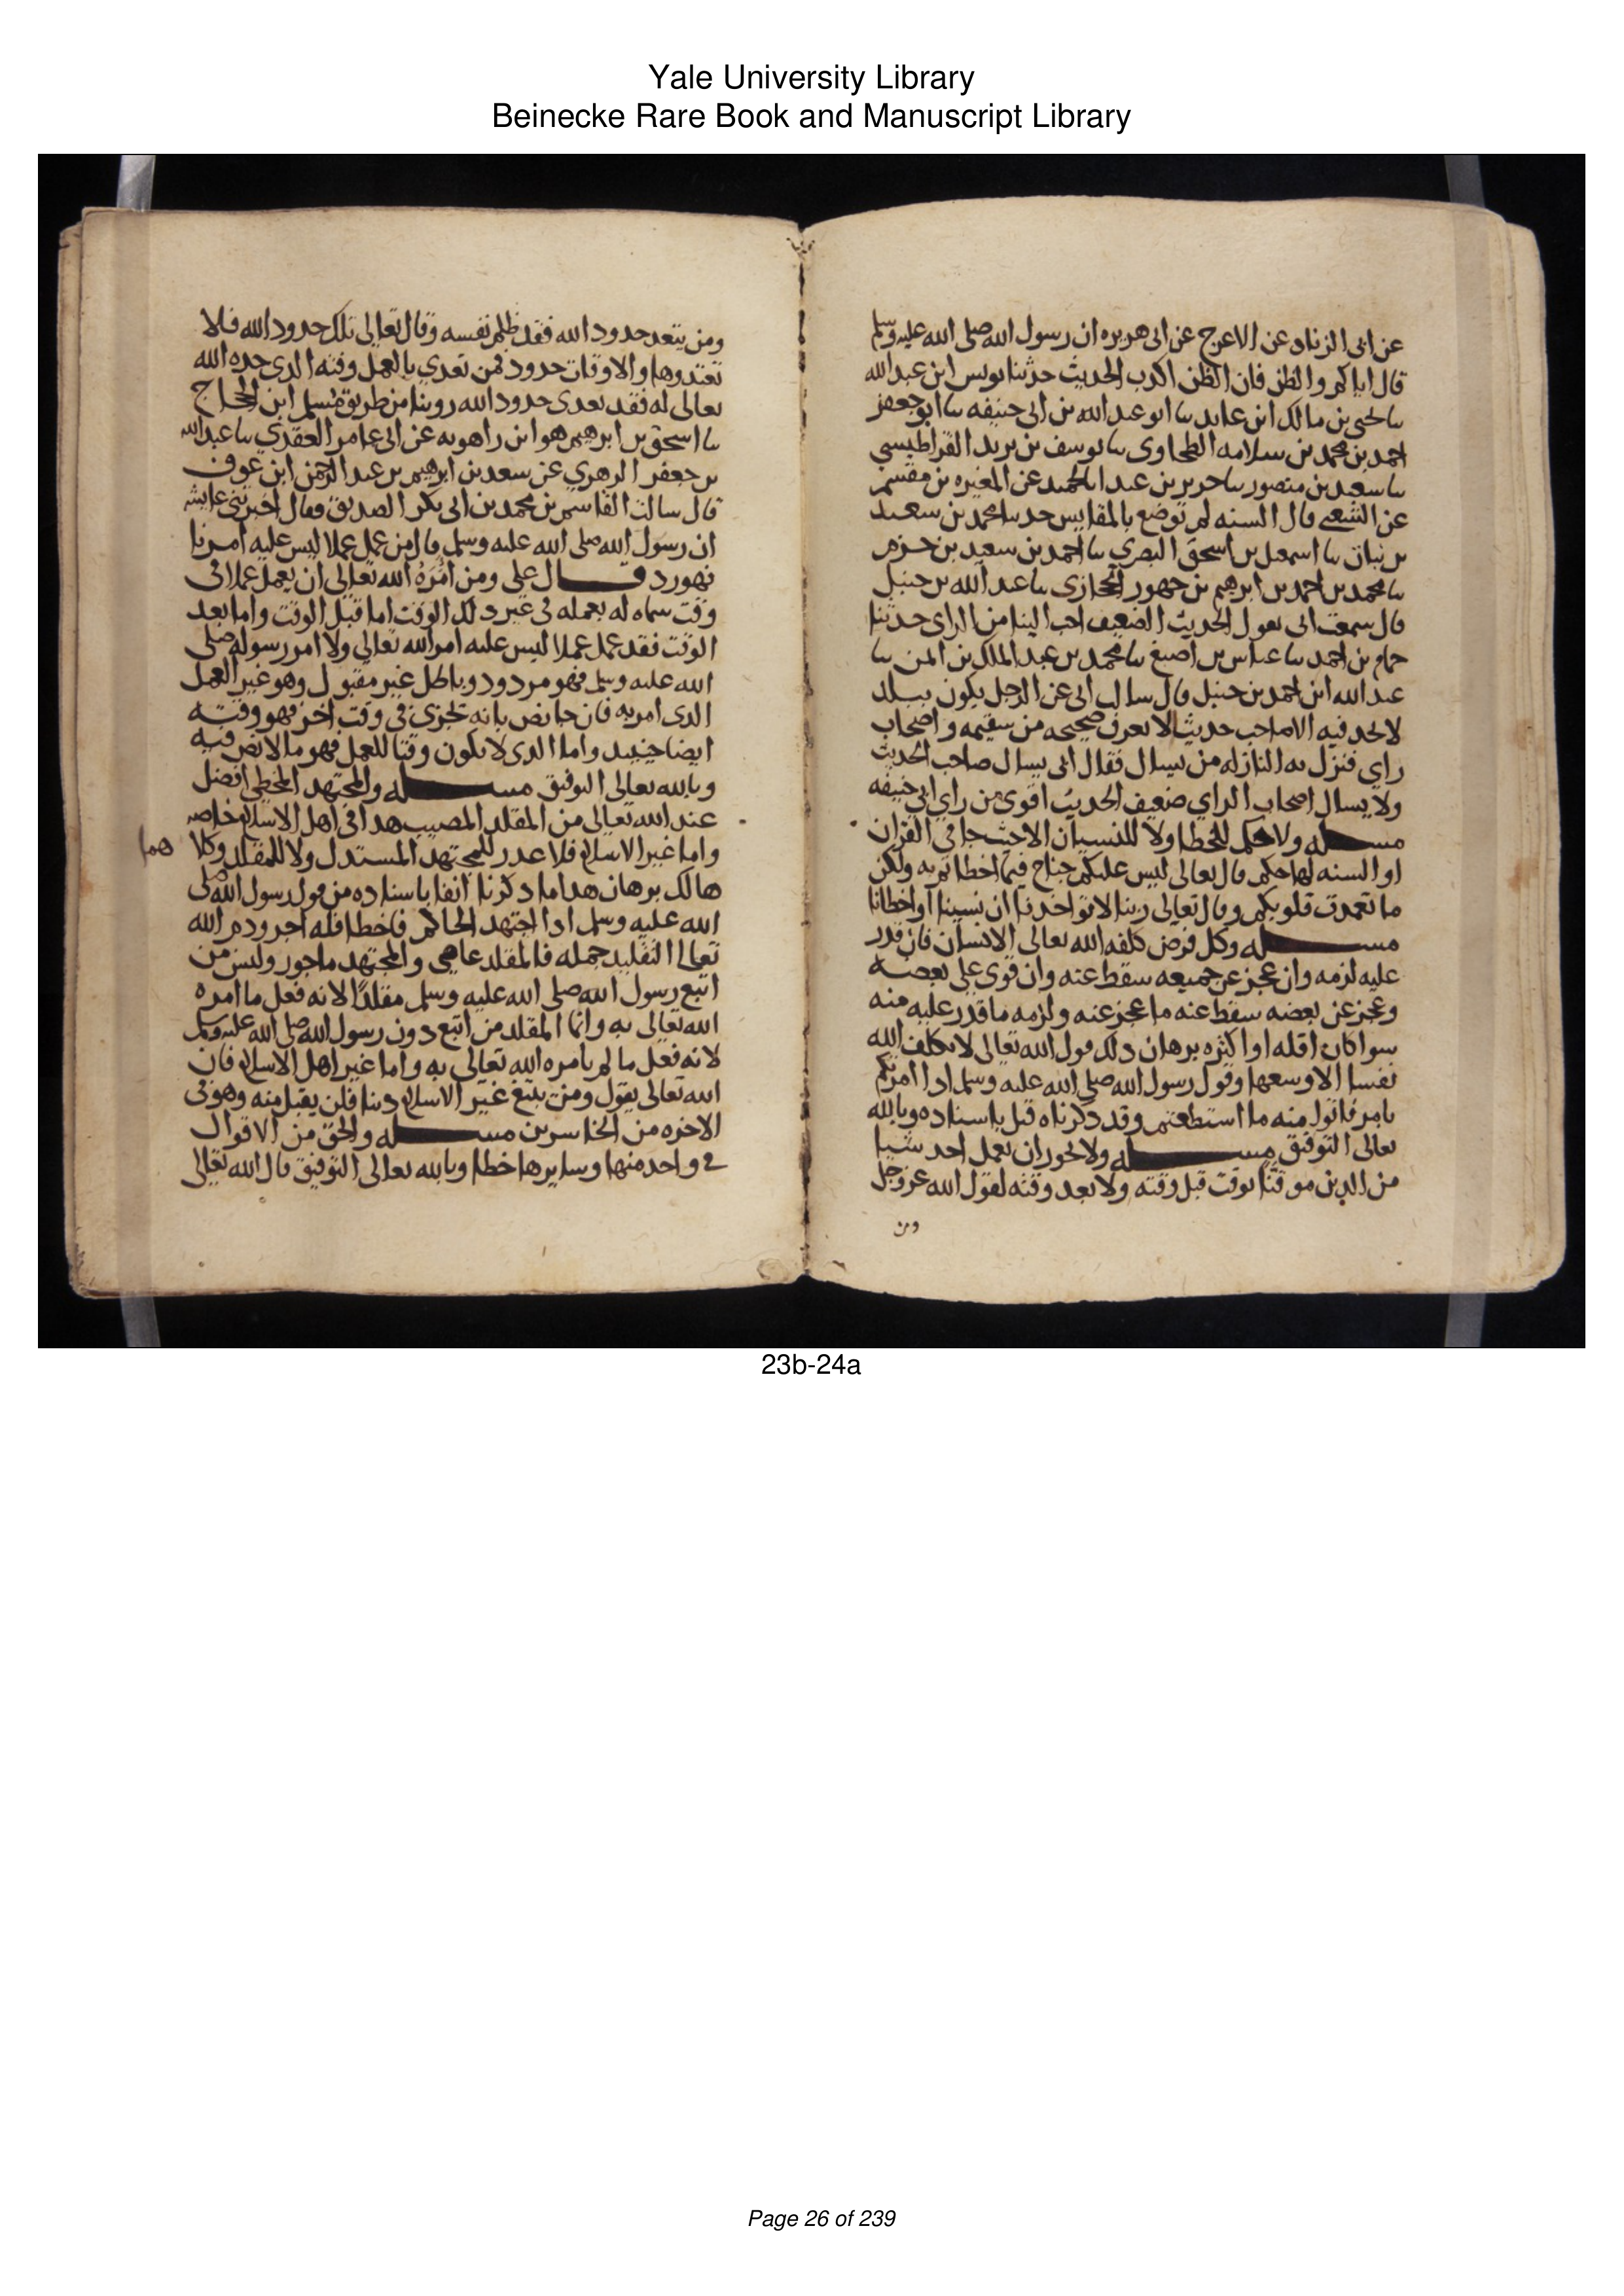 Yale University Library
Beinecke Rare Book and Manuscript Library
عن ابى الزناد عن الاعرج عن ابى هريره ان رسول الله صلى الله عليه وسلم
قال اياكم والظن فان الظن اكدب الحديث حدثنا يونس ابن عبد الله
سا يحيى بن مالك ابن عايد سا ابو عبد الله بن ابى حنيفه سا ابو جعفر
احمد بن محمد بن سلامه الطحاوى سا يوسف بن يزيد القراطيسي
سا سعيد بن منصور سا جرير بن عبد الحميد عن المغيره بن مقسم
عن الشعبي قال السنه لم توضع بالمقاييس حدسا محمد بن سعيد
بن نبات سا اسمعيل بن اسحق البصري سا احمد بن سعيد بن حزم
سا محمد بن احمد بن ابرهيم بن جهور الحجازى سا عبد الله بن حنبل
قال سمعت ابى يقول الحديث الضعيف احب الينا من الراى حدثنا
حمام بن احمد سا عباس بن اصبغ سا محمد بن عبد الملك بن ايمن سا
عبد الله ابن احمد بن حنبل قال سالت ابى عن الرجل يكون ببلد
لا يجد فيه الا صاحب حديث لا يعرف صحيحه من سقيمه واصحاب
راي فتنزل به النازله من يسال فقال ابى يسال صاحب الحديث
ولا يسال اصحاب الراي ضعيف الحديث اقوى من راي ابى حنيفه
مسـله ولا حكم للخطا ولا للنسيان الا حيث جا في القران
او السنه لهما حكم قال تعالى ليس عليكم جناح فيما اخطاتم به ولكن
ما تعمدت قلوبكم وقال تعالى ربنا لا تواخدنا ان نسينا او اخطانا
مسـله وكل فرض كلفه الله تعالى الانسان فان قدر
عليه لزمه وان عجز عن جميعه سقط عنه وان قوى على بعضه
وعجز عن بعضه سقط عنه ما عجز عنه ولزمه ما قدر عليه منه
سوا كان اقله او اكثره برهان دلك قول الله تعالى لا يكلف الله
نفسا الا وسعها وقول رسول الله صلى الله عليه وسلم ادا امرتكم
بامر فاتوا منه ما استطعتم وقد دكرناه قبل باسناده وبالله
تعالى التوفيق مسـله ولا يجوز ان يعمل احد شيا
من الدين موقتا بوقت قبل وقته ولا بعد وقته لقول الله عز وجل
ومن
ومن يتعد حدود الله فقد ظلم نفسه وقال تعالى تلك حدود الله فلا
تعتدوها والاوقات حدود فمن تعدي بالعمل وقته الدى حده الله
تعالى له فقد تعدى حدود الله روينا من طريق مسلم ابن الحجاج
سا اسحق بن ابرهيم هو ابن راهويه عن ابى عامر العقدي سا عبد الله
بن جعفر الزهري عن سعد بن ابرهيم بن عبد الرحمن ابن عوف
قال سالت القاسم بن محمد بن ابى بكر الصديق فقال اخبرتني عايشه
ان رسول الله صلى الله عليه وسلم قال من عمل عملا ليس عليه امرنا
فهو رد قـال على ومن امره الله تعالى ان يعمل عملا فى
وقت سماه له فعمله فى غير دلك الوقت اما قبل الوقت واما بعد
الوقت فقد عمل عملا ليس عليه امر الله تعالى ولا امر رسوله صلى
الله عليه وسلم فهو مردود وباطل غير مقبول وهو غير العمل
الدى امر به فان جا نص بانه يجزى فى وقت اخر فهو وقته
ايضا حينيد واما الدى لا يكون وقتا للعمل فهو ما لا نص فيه
وبالله تعالى التوفيق مسـله والمجتهد المخطي افضل
عند الله تعالى من المقلد المصيب هدا فى اهل الاسلام خاصه
واما غير الاسلام فلا عدر للمجتهد المستدل ولا للمقلد وكلا
هما
هالك برهان هدا ما دكرنا انفا باسناده من قول رسول الله صلى
الله عليه وسلم ادا اجتهد الحاكم فاخطا فله اجر ودم الله
تعالى التقليد جمله فالمقلد عاصي والمجتهد ماجور وليس من
اتبع رسول الله صلى الله عليه وسلم مقلدا لانه فعل ما امره
الله تعالى به وانما المقلد من اتبع دون رسول الله صلى الله عليه وسلم
لانه فعل ما لم يامره الله تعالى به واما غير اهل الاسلام فان
الله تعالى يقول ومن يبتغ غير الاسلام دينا فلن يقبل منه وهو فى
الاخره من الخاسرين مسـله والحق من الاقوال
في واحد منها وسايرها خطا وبالله تعالى التوفيق قال الله تعالى
23b-24a
Page 26 of 239